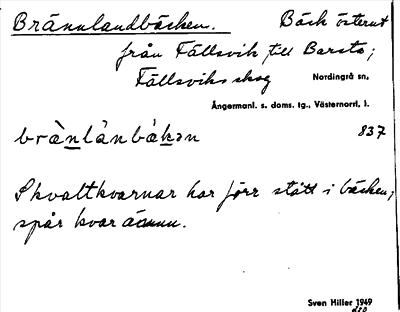 Brännlandbäcken. Bäck österut
från Fällsvik till Barsta;
Fällsviks skog Nordingrå sn,
Ångermanl. s. doms. tg., Västernorrl. l.
brànlànbàkən 837
Skvaltkvarnar har förr stått i bäcken;
spår kvar ännu.
Sven Hiller 1949